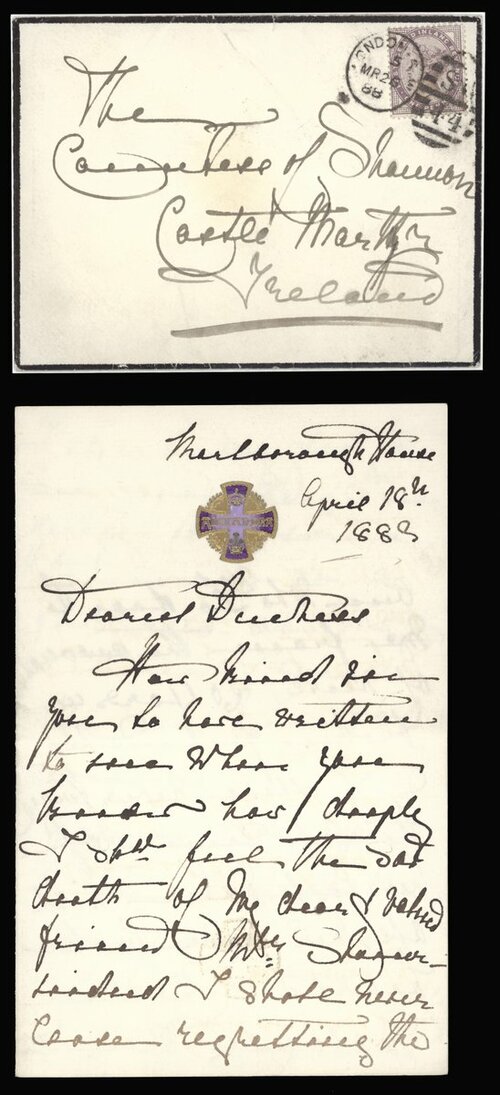 LONDON S.W
5
MR 2
88
S
44
INLAND
The
Countess of Shannon
Castle Martyr
Ireland
Marlborough House
April 18th
1883
Dearest Duchess
How kind in
you to have written
to me when you
know how deeply
I shd feel the sad
death of my dear & valued
friend Mrs
I shall never
cease regretting the